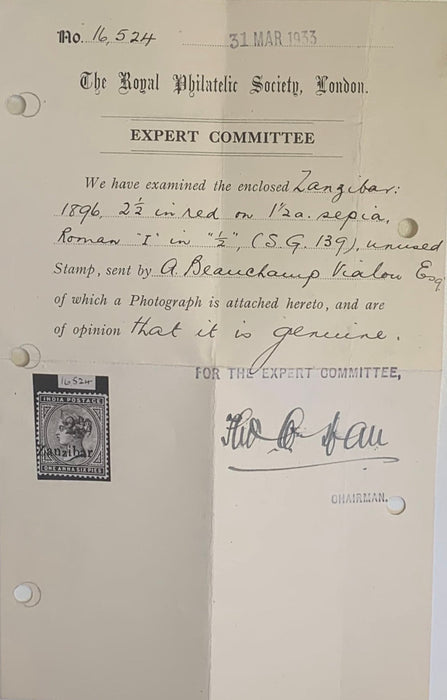 No. 16,524
31 MAR 1933
The Royal Philatelic Society, London.
EXPERT COMMITTEE
We have examined the enclosed Zanzibar:
1896, 2½ in red on 1½a. sepia,
Roman "I" in "½", (S.G. 139), unused
Stamp, sent by A. Beauchamp Vialou Esq
of which a Photograph is attached hereto, and are
of opinion that it is genuine.
FOR THE EXPERT COMMITTEE,
16524
INDIA POSTAGE
2½
Zanzibar
ONE ANNA SIX PIES
CHAIRMAN.